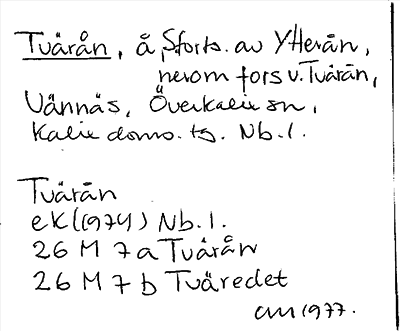 Tvärån, å, forts. av Ytterån,
nerom fors v. Tvärån,
Vännäs, Överkalix sn,
Kalix doms. tg. Nb. l.
Tvärån
ek (1974) Nb. l.
26 M 7 a Tvärån
26 M 7 b Tväredet
AM 1977.